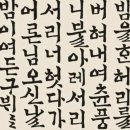 밤을ᄒᆞᆫ허리를
버혀내여츈풍
니불아래서리
서리너헛다가
어론님오신날
밤이여든구뷔